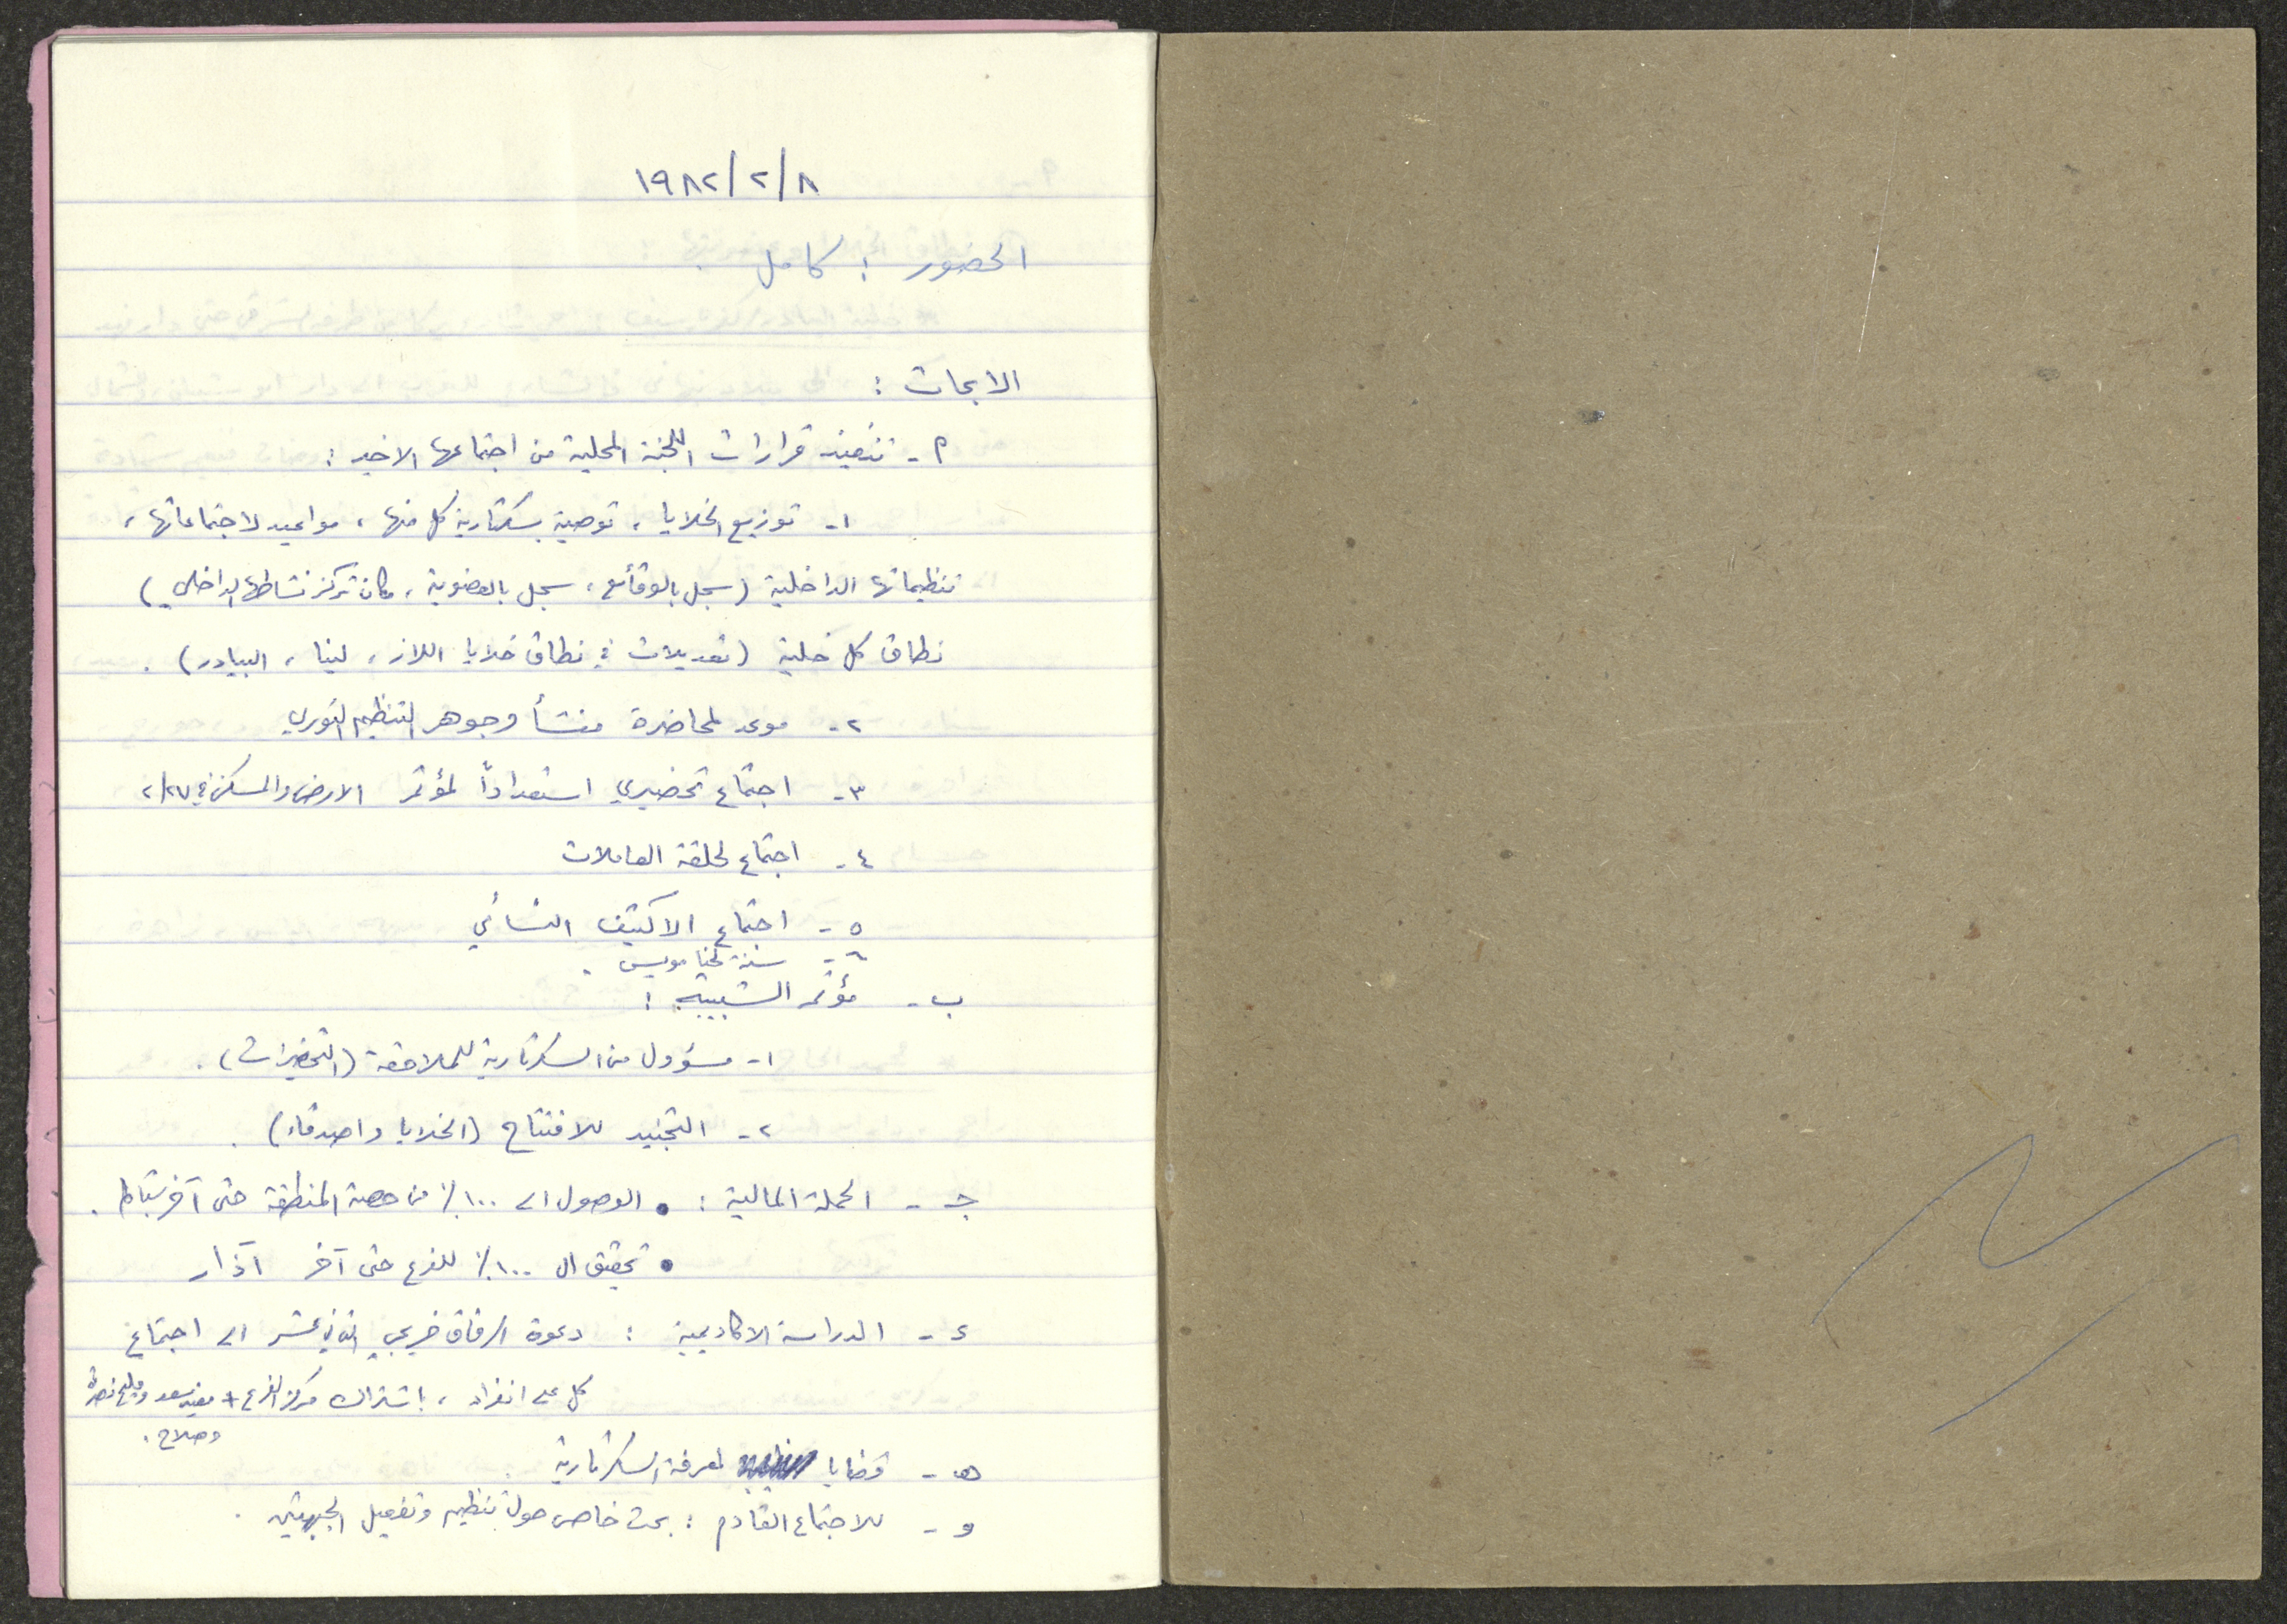 ١٩٨٢/٢/٨
الحضور : كامل
الابحاث :
أ- تنفيذ قرارات اللجنة المحلية من اجتماعها الاخير :
١- توزيع الخلايا ، توصية بسكرتارية كل منها ، مواعيد لاجتماعاتها ،
تنظيماتها الداخلية (سجل بالوقائع ، سجل بالعضوية ، مكان تركز نشاطها الداخلي)
نطاق كل خلية (تعديلات في نطاق خلايا اللاز ، لينا ، البيادر) .
٢- موعد لمحاضرة منشأ وجوهر التنظيم الثوري
٣- اجتماع تحضيري استعداداً لمؤتمر الارض والمسكن في ٢/٢٧
٤- اجتماع لحلقة العاملات
٥- اجتماع الاكتيف النسائي
٦- سنة لحنا مويس .
ب- مؤتمر الشبيبة :
١- مسؤول من السكرتارية للملاحقة (التحضيرات) .
٢- التجنيد للافتتاح (الخلايا واصدقاء) .
جـ - الحملة المالية : • الوصول الى ١٠٠٪ من حصة المنطقة حتى آخر شباط .
• تحقيق ال ١٠٠٪ للفرع حتى آخر آذار
د - الدراسة الاكاديمية : دعوة الرفاق خريجي الثاني عشر الى اجتماع
كل على انفراد ، باشتراك مركز الفرع +
وصلاح .
هـ - قضايا لمعرفة السكرتارية
و - للاجتماع القادم : بحث خاص حول تنظيم وتفعيل الجبهتين .